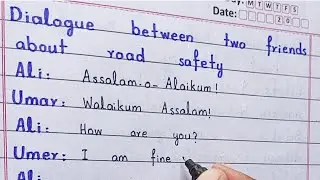 Day: M T W T F S
Date: 20
Dialogue between two friends
about road safety
Ali: Assalam-o-Alaikum!
Umar: Walaikum Assalam!
Ali: How are you?
Umer: I am fine
Ali: